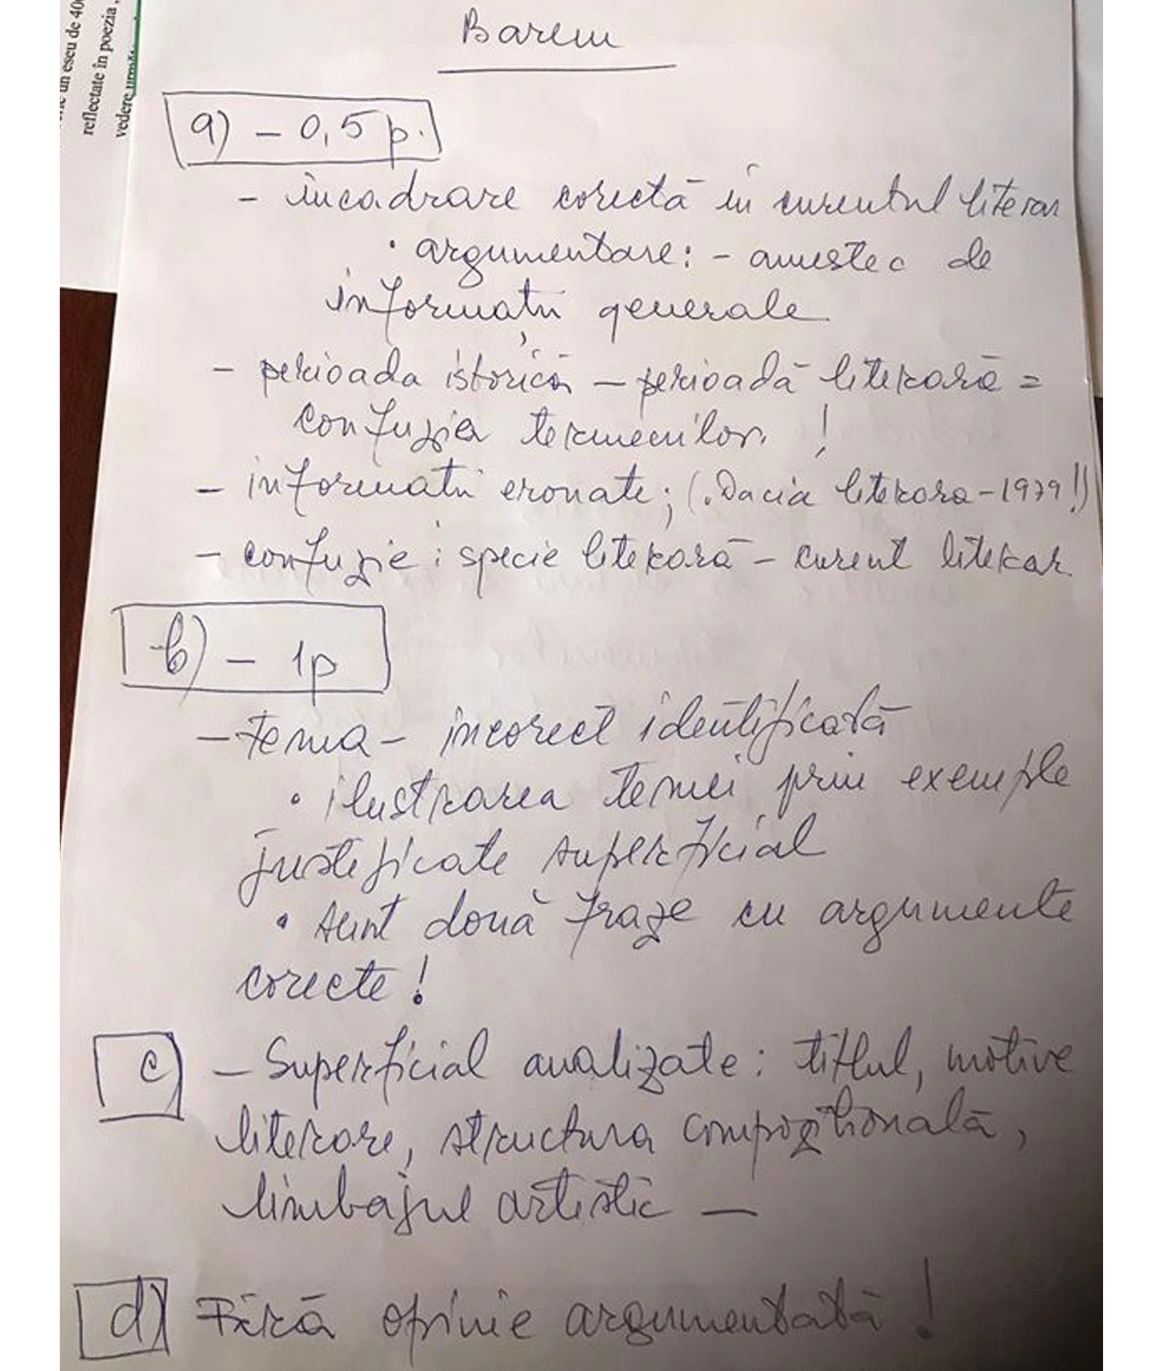 un eseu de 40
reflectate în poezia,
vedere
Barem
a) – 0,5 p.
- încadrare corectă în curentul literar
• argumentare: - amestec de
informații generale
- perioada istorică – perioadă literară =
confuzia termenilor !
- informatii eronate; (.Dacia literara – 1979!!)
- confuzie: specie literară – curent literar
b) – 1p
- tema – incorect identificată
• ilustrarea temei prin exemple
justificate superficial
• sunt două fraze cu argumente
corecte !
c) – Superficial analizate: titlul, motive
literare, structura compozițională,
limbajul artistic —
d) Fără opinie argumentată !